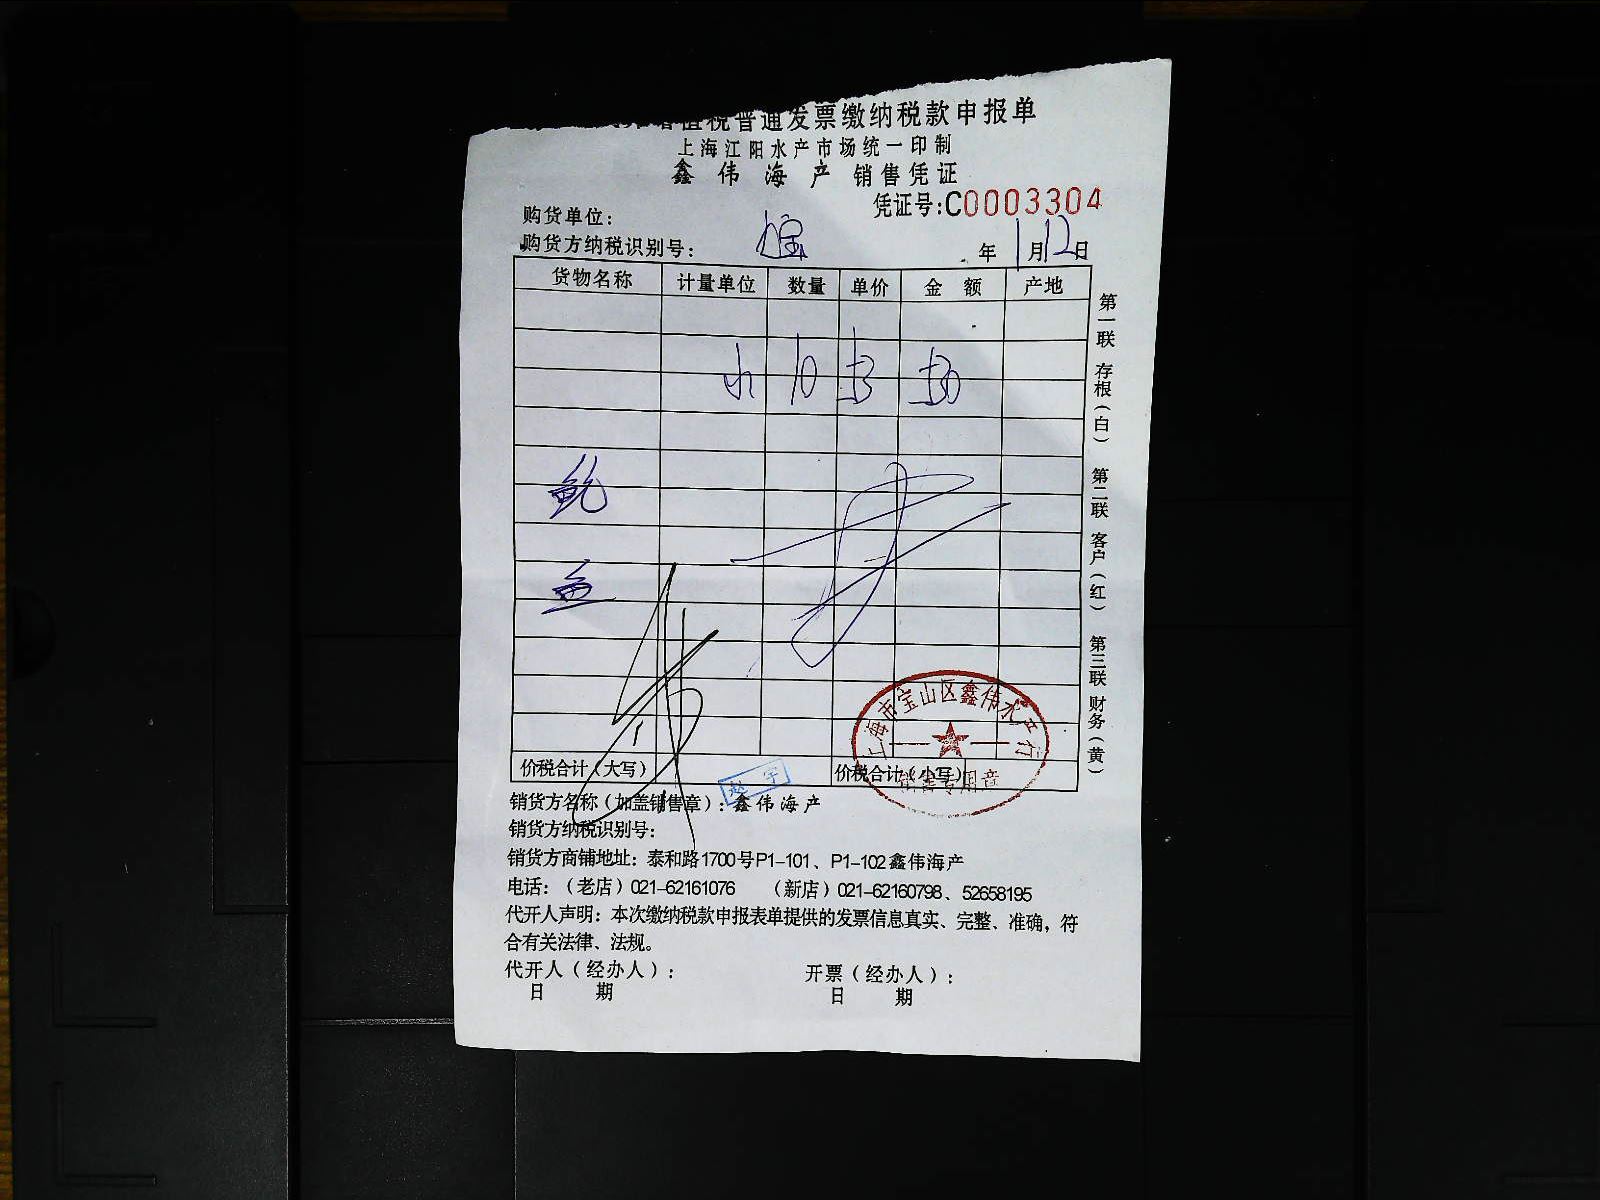 值税普通发票缴纳税款申报单
上海江阳水产市场统一印制
鑫伟海产 销售凭证
凭证号:C0003304
购货单位:
购货方纳税识别号: 年 1月12日
货物名称 计量单位 数量 单价 金额 产地
10
鱼
价税合计(大写) 价税合计(小写)
赵宇
上海市宝山区鑫伟水产行
销售专用章
销货方名称(加盖销售章):鑫伟海产
销货方纳税识别号:
销货方商铺地址:泰和路1700号P1-101、P1-102鑫伟海产
电话:(老店)021-62161076 (新店)021-62160798、52658195
代开人声明:本次缴纳税款申报表单提供的发票信息真实、完整、准确,符
合有关法律、法规。
代开人(经办人): 开票(经办人):
日期 日期
第一联 存根(白) 第二联 客户(红) 第三联 财务(黄)